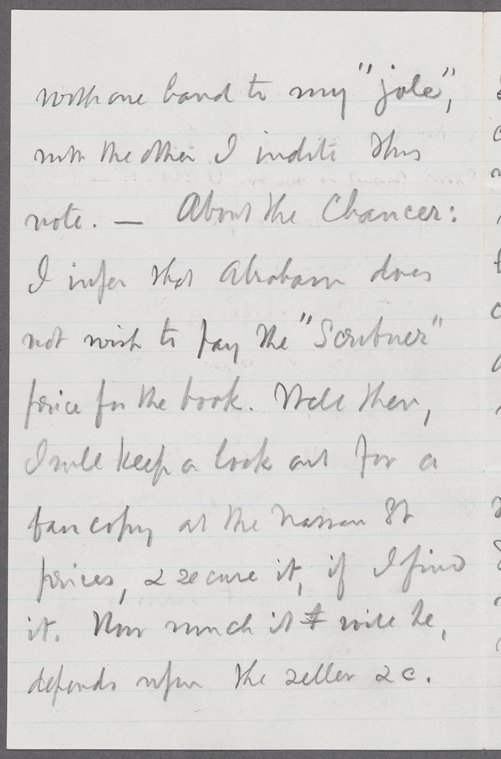 with one hand to my "jole",
with the other I indite this
note. — About the Chaucer:
I infer that Abraham does
not wish to pay the "Scribner"
price for the book. Well then,
I will keep a look out for a
fair copy at the Nassau St
prices, & secure it, if I find
it. How much it will be,
depends upon the seller &c.